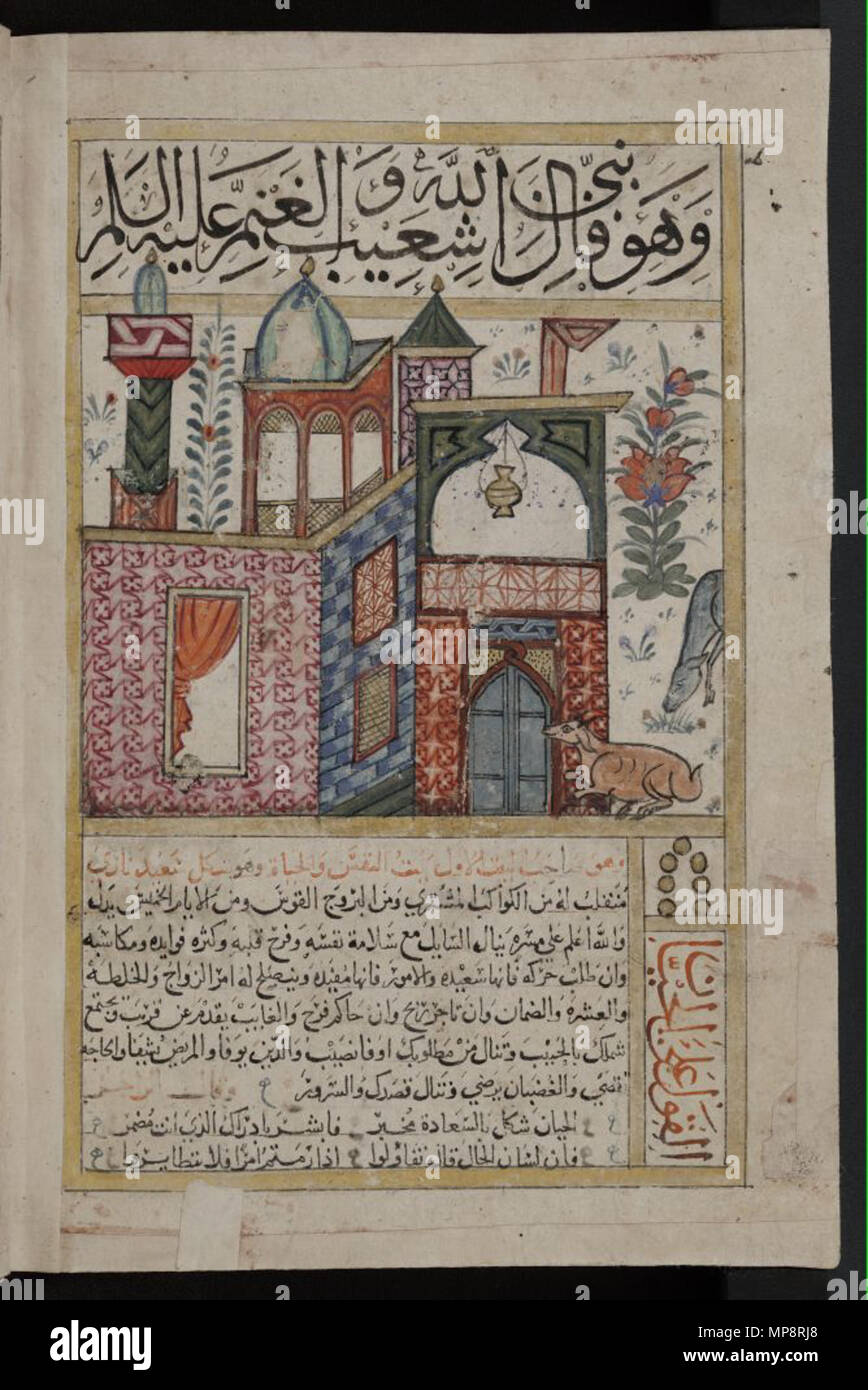 وهو فال نبي الله
شعيب والغنم عليه السلم
وهو صاحب البيت الاول بيت النفس والحياة وهو شكل سعيد ناري
منقلب له من الكواكب المشتري ومن البروج القوس ومن الايام الخميس يدل
والله اعلم على مسره ينال السايل مع سلامة نفسه وفرح قلبه وكثره فوايده ومكاسبه
وان طلب حركه فانها سعيده والامور فانها مفيده ويصلح له امر الزواج والخلطة
والعشره والضمان وان تاجر ربح وان حاكم فرح والغايب يقدم عن قريب ويجتمع
شملك بالحبيب وتنال من مطلوبك اوفا نصيب والدين يوفا والمريض يشفا والحاجه
تقضي والغضبان يرضي وتنال قصدك والسرور
الحيان شكل بالسعادة مخبر فابشر بادراك الذي انت مضمر
فان لسان الحال قال تفاولوا اذا رمتم امرا فلا تتطايروا
القول على الحيان
alamy
a
Image ID: MP8RJ8
www.alamy.com